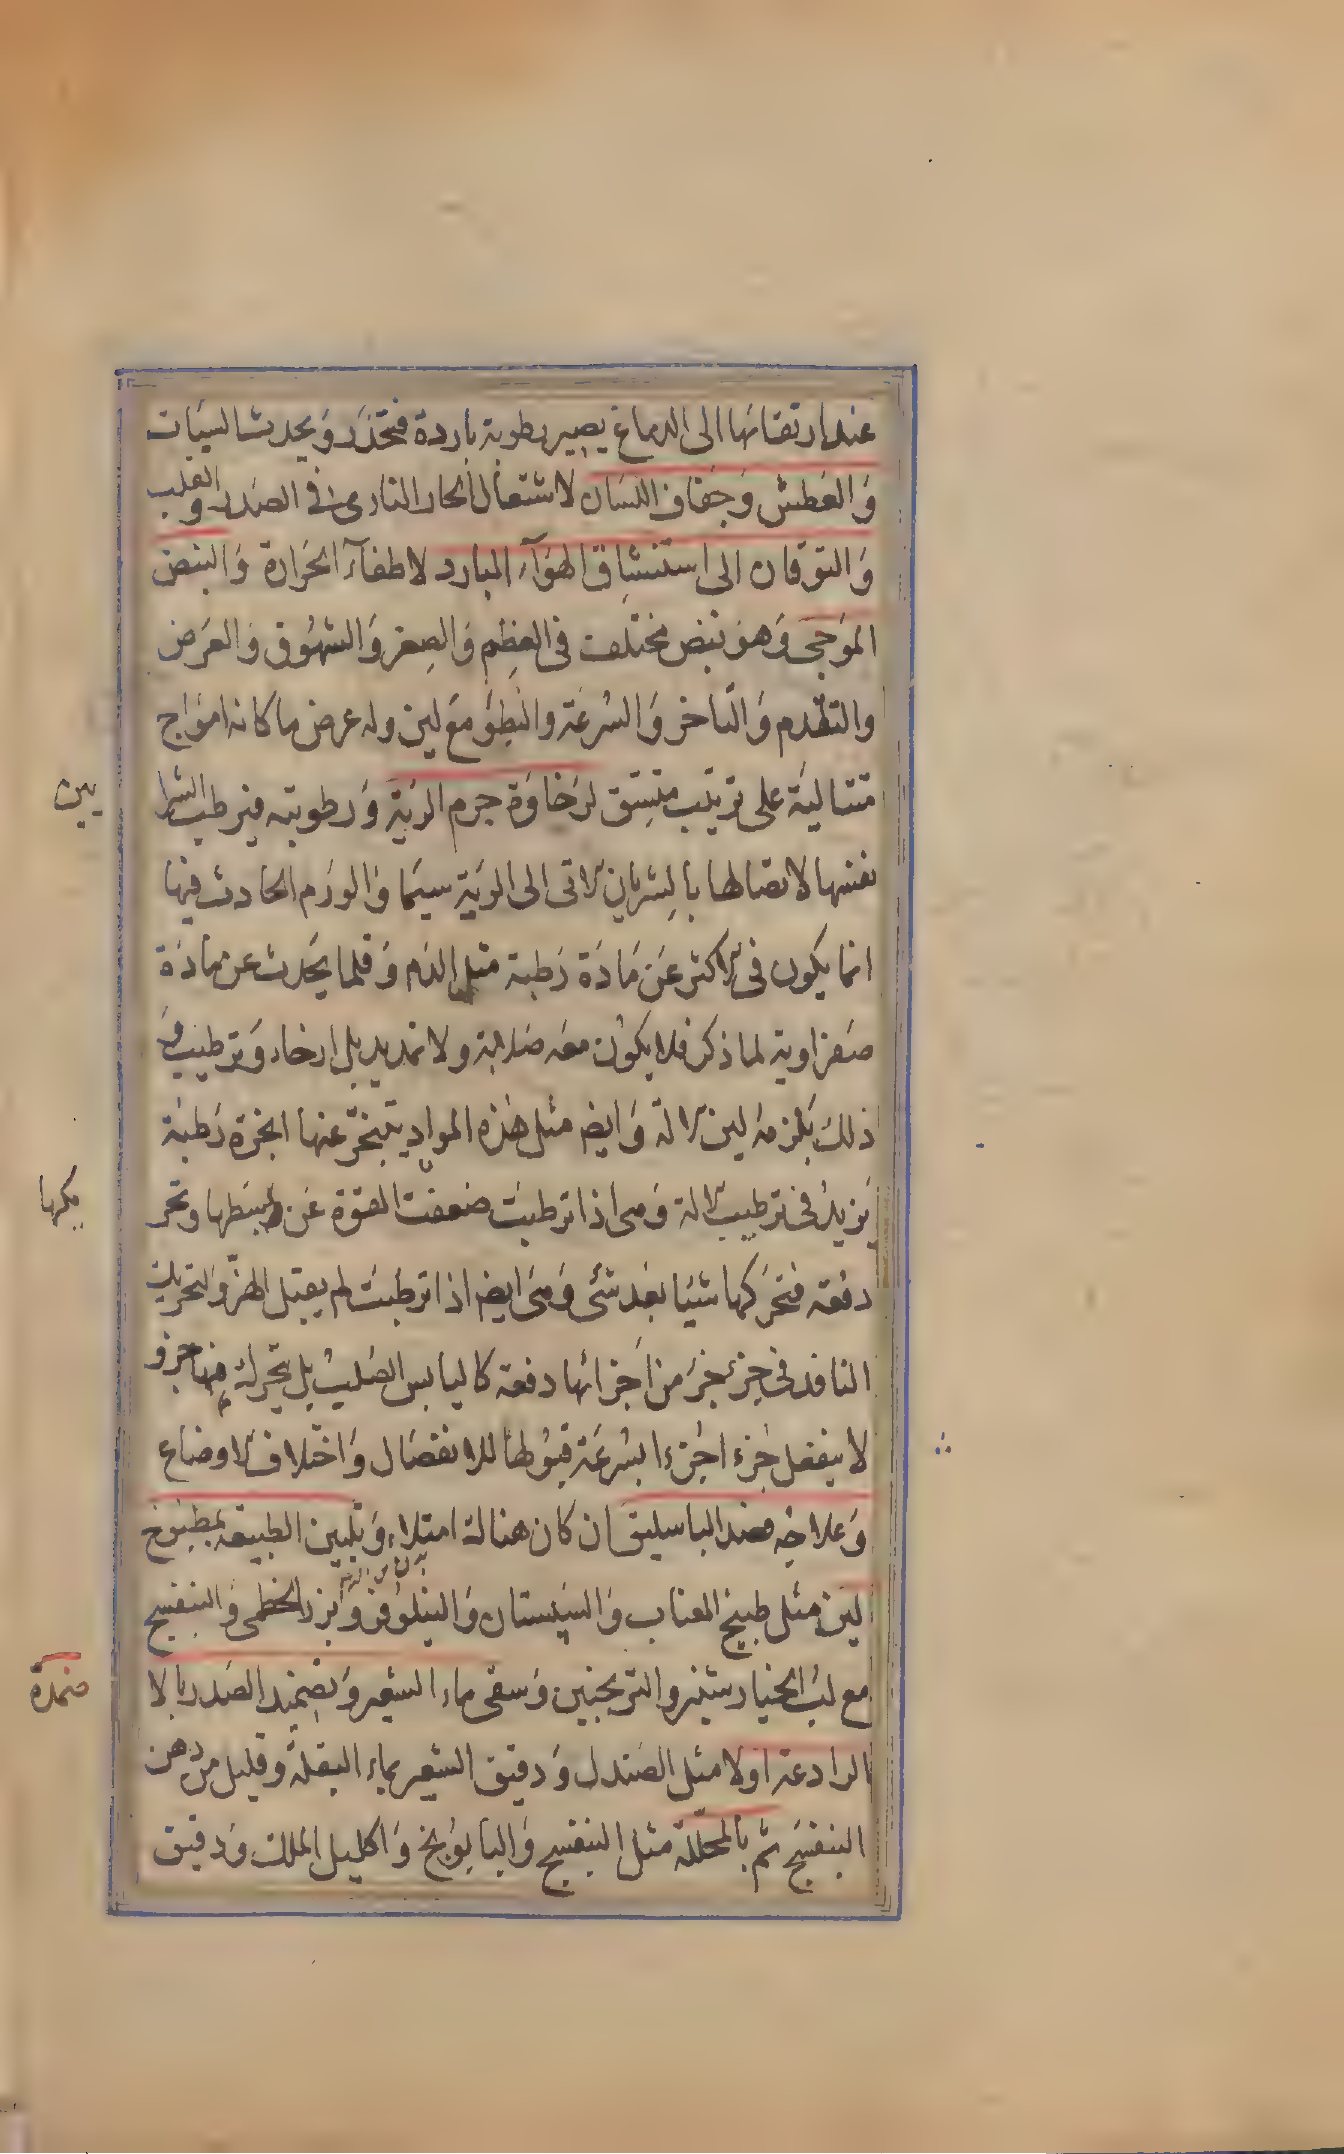 عند ارتقائها الى الدماغ يصير رطوبة باردة فتخدر ويحدث السبات
والعطش وجفاف اللسان لاشتعال الحار النارى فى الصدر والقلب
والتوقان الى استنشاق الهوآء البارد لاطفآء الحرارة والنبض
الموجى وهو نبض مختلف فى العظم والصغر والشهوق والعرض
والتقدم والتاخر والسرعة والبطؤ مع لين وله عرض ما كانه امواج
متتالية على ترتيب متسق لرخاوة جرم الرية ورطوبته فيرطب الشرا
يين
نفسها لاتصالها بالشريان الاتى الى الرية سيما والورم الحادث فيها
انما يكون فى الاكثر عن مادة رطبة مثل الدم وقلما يحدث عن مادة
صفراوية لما ذكر فلا يكون معه صلابة ولا تمديد بل ارخاء وترطيب ومع
ذلك يلزمه لين الالة وايضا مثل هذه المواد يتبخر عنها ابخرة رطبة
يزيد فى ترطيب الالة ومى اذا ترطبت ضعفت القوة عن بسطها وتحر
يكها
دفعة فتحركها شيئا بعد شئ ومى ايضا اذا ترطبت لم يقبل الهز والتحريك
النافذ فى جزء جزء من اجزائها دفعة كاليابس الصليب بل يتحرك منها جزء و
لا ينفعل جزء اجزءا بسرعة قبولها للانفصال واختلاف الاوضاع
وعلاجه فصد الباسليق ان كان هناك امتلاء وتليين الطبيعة بمطبوخ
لين مثل طبيخ العناب والسبستان والنيلوفر وبزر الخطمى والبنفسج
مع لب الخيارشنبر والترنجبين وسقى ماء الشعير وتضميد الصدر بالا
ضمدة
الرادعة اولا مثل الصندل ودقيق الشعير بماء البقلة وقليل من دهن
البنفسج ثم بالمحللة مثل البنفسج والبابونج واكليل الملك ودقيق